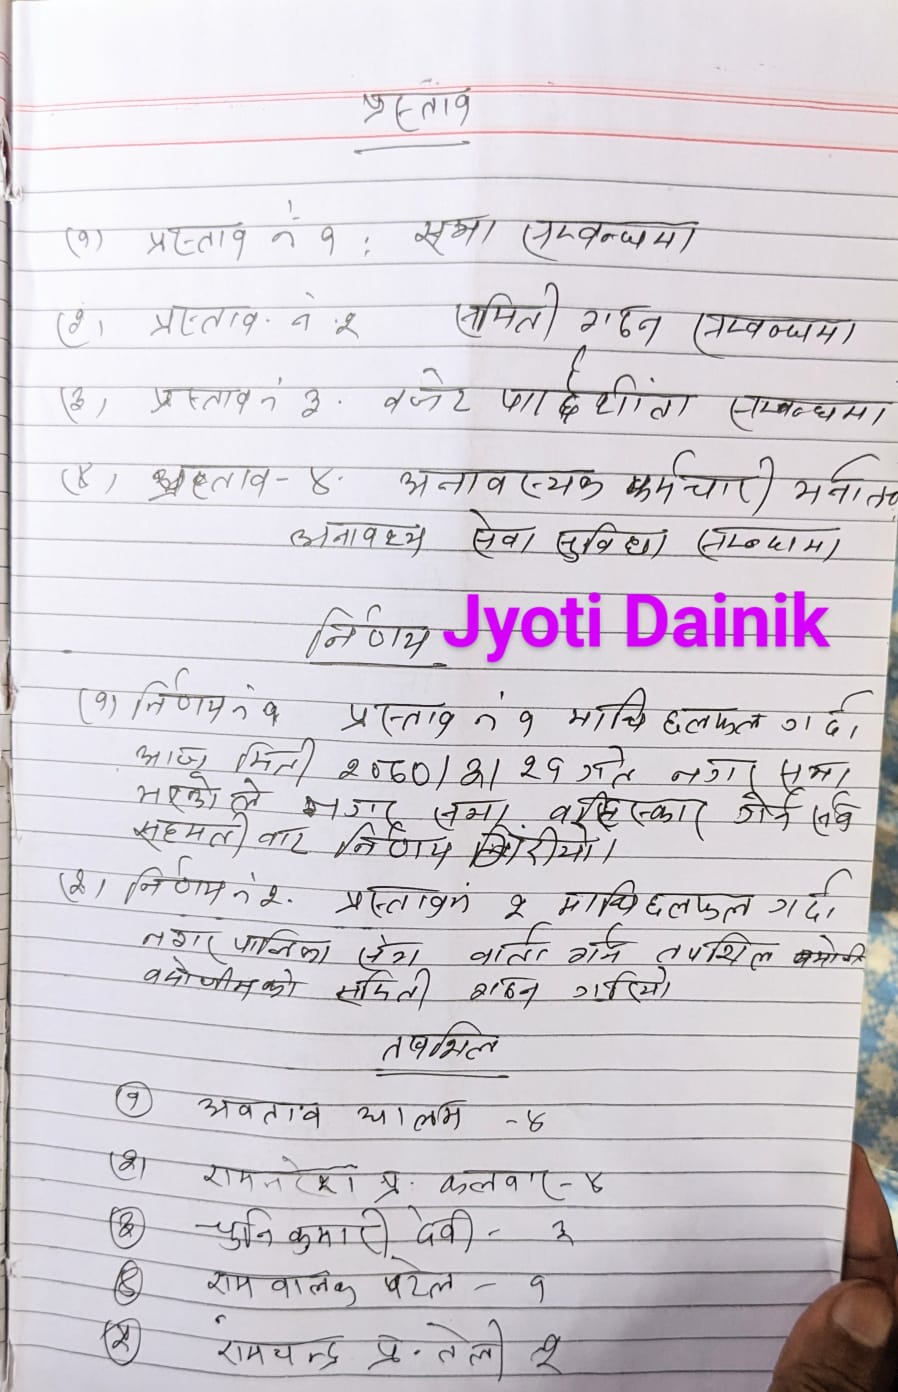 प्रस्ताव
(१) प्रस्ताव नं १ : सभा सम्वन्धमा
(२) प्रस्ताव नं २ समिती गठन सम्वन्धमा
(३) प्रस्ताव नं ३. वजेट सम्वन्धमा
(४) प्रस्ताव - ४. अनावस्यक कर्मचारी
अनावश्य सेवा सुविधा सम्वन्धमा
निर्णय
Jyoti Dainik
(१) निर्णय नं १ प्रस्ताव नं १ माथि छलफल गर्दा
आज मिती २०८०।३।२१ गते नगर सभा
भएकोले नगर सभा वहिस्कार गर्न सर्व
सहमती वाट निर्णय गरीयो।
(२) निर्णय नं २. प्रस्ताव नं २ माथि छलफल गर्दा
नगर पालिका वार्ता गर्न तपशिल
वमोजीमको समिती गठन गरियो
तपशिल
१ अवताव आलम - ४
(२) रामनरेश प्र. कलवार - ४
३ कुमारी देवी - ३
४ राम वालक पटेल - १
५ रामचन्द्र प्र. तेली २